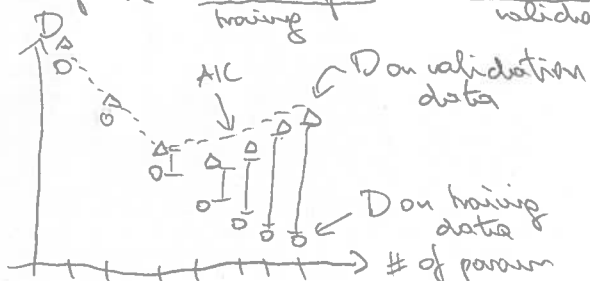 training valida
D
AIC
D on validation
data
D on training
data
# of param